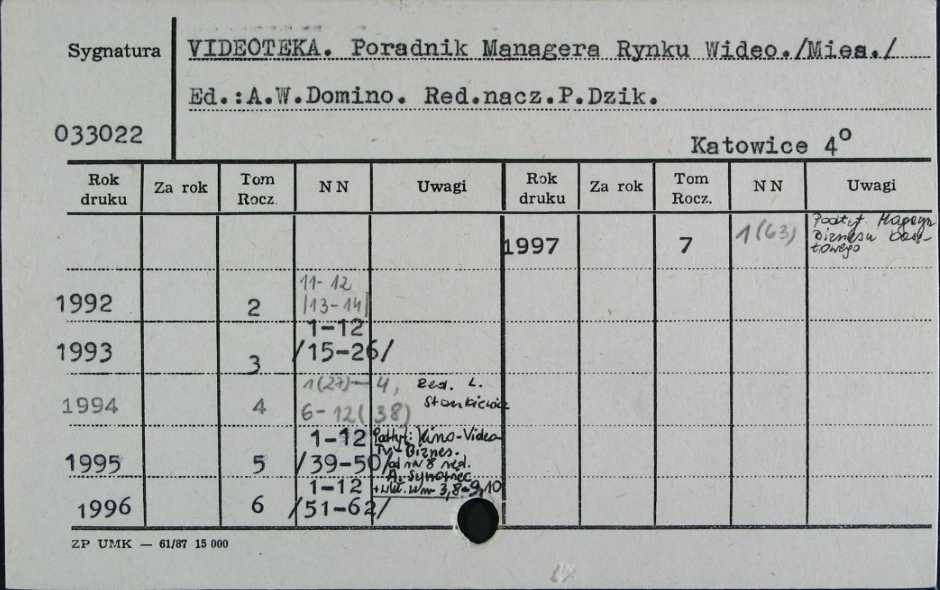 Sygnatura
VIDEOTEKA. Poradnik Managera Rynku Wideo./Mies./
Ed.:A.W.Domino. Red.nacz.P.Dzik.
033022
Katowice 4°
Rok druku Za rok Tom Rocz. NN Uwagi Rok druku Za rok Tom Rocz. NN Uwagi
1997 7 1(63) Podtyt. Magazyn
Biznesu
1992 2 11-12
/13-14/
1993 3 1-12
/15-26/
1994 4 1(27)-4, Red. L.
6-12(38) Stankiewicz
1995 5 1-12 Podtyt: Kino-Video
/39-50/ TV-Biznes.
od nr 8 red.
A.
1996 6 1-12 3,8-9,10
/51-62/
ZP UMK — 61/87 15 000